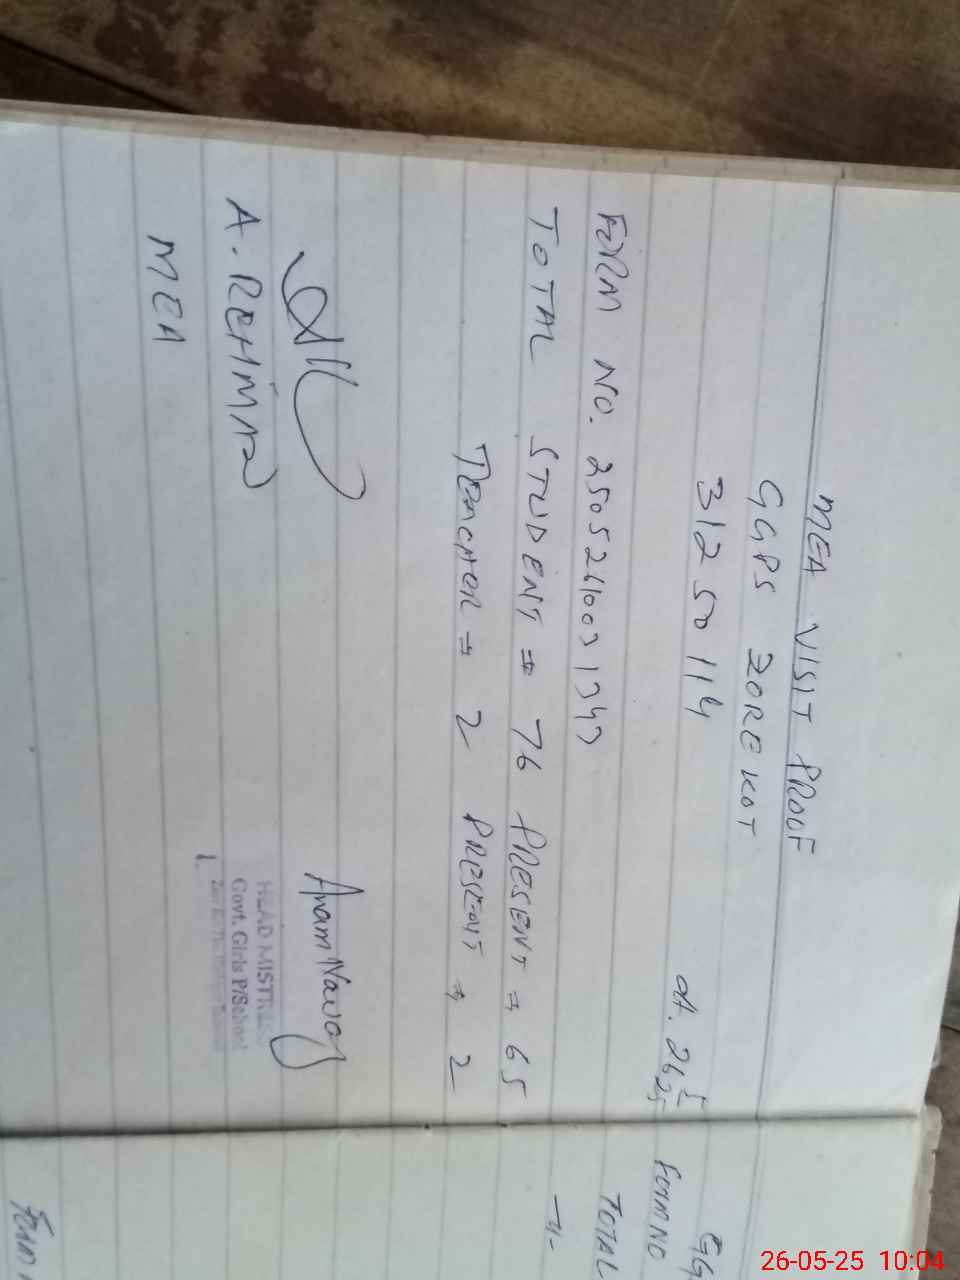 MEA VISIT PROOF
GGPS ZOREKOT
31250114
dt. 26 5/25
FORM NO. 25052610031343
TOTAL STUDENT = 76 PRESENT = 65
TEACHER = 2 PRESENT = 2
Anam Nawaz
A. REHMAN
MEA
HEAD MISTRESS
Govt. Girls P/School
GG
FORM NO
TOTAL
26-05-25 10:04